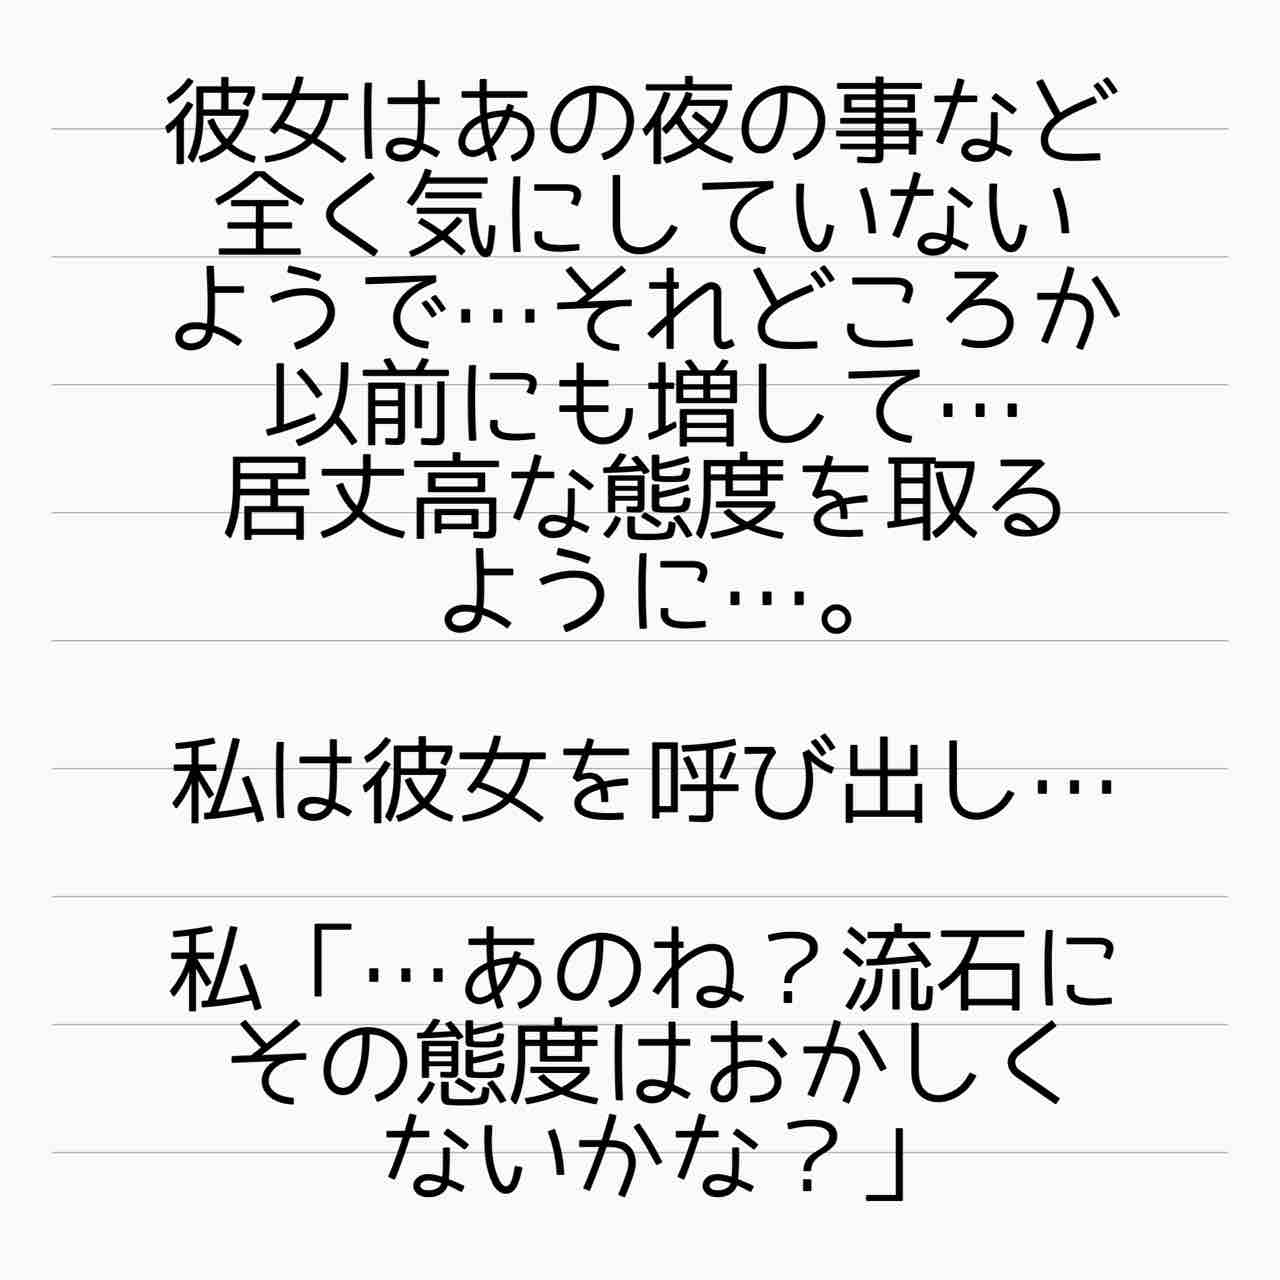 彼女はあの夜の事など
全く気にしていない
ようで…それどころか
以前にも増して…
居丈高な態度を取る
ように…。
私は彼女を呼び出し…
私「…あのね？流石に
その態度はおかしく
ないかな？」